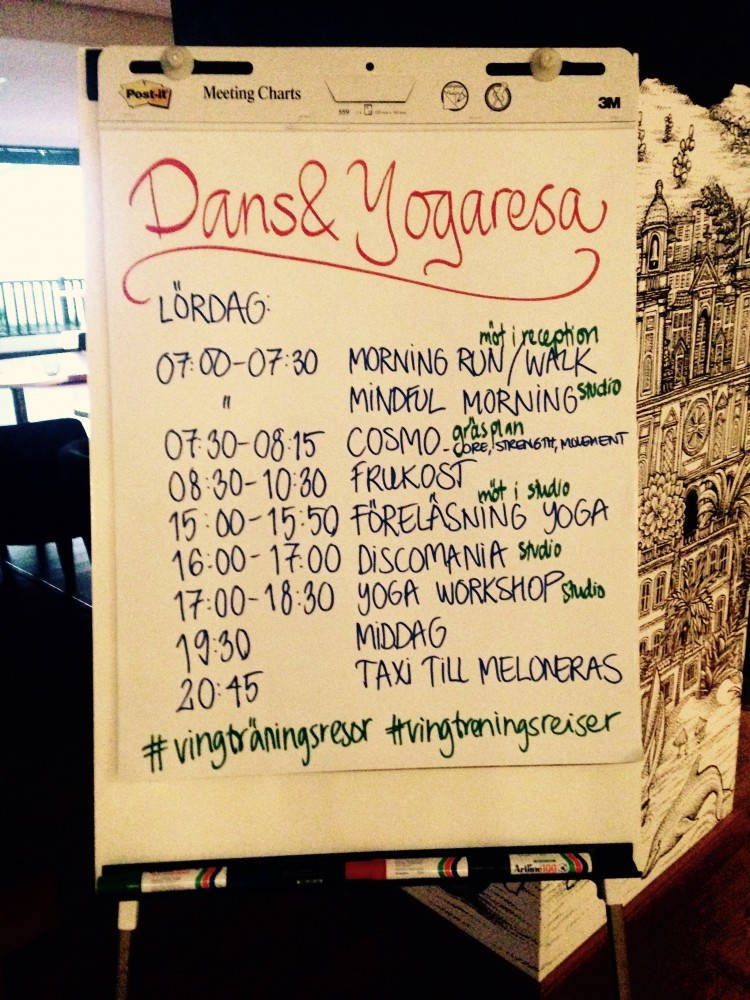 Post-it Meeting Charts 3M
Dans & Yogaresa
LÖRDAG:
möt i reception
07:00-07:30 MORNING RUN/WALK
" MINDFUL MORNING studio
gräsplan
07:30-08:15 COSMO - CORE, STRENGTH, MOVEMENT
08:30-10:30 FRUKOST
möt i studio
15:00-15:50 FÖRELÄSNING YOGA
16:00-17:00 DISCOMANIA studio
17:00-18:30 YOGA WORKSHOP studio
19:30 MIDDAG
20:45 TAXI TILL MELONERAS
#vingträningsresor #vingtreningsreiser
Artline 100